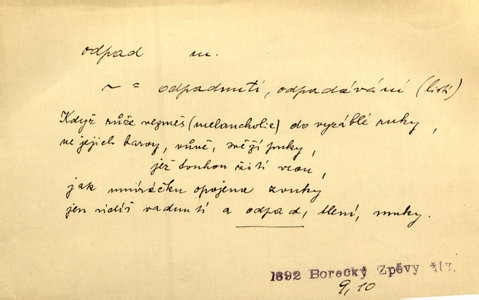 odpad m.
~ = odpadnutí, odpadávání (listí)
Když růže vezmeš (melancholie) do vyzáblé ruky,
ne jejich barvy, vůně, svěží puky,
jež touhou žití vrou,
jak umíráčku opojena zvuky
jen vidíš vadnutí a odpad, tlení, muky.
1892 Borecký Zpěvy
9, 10